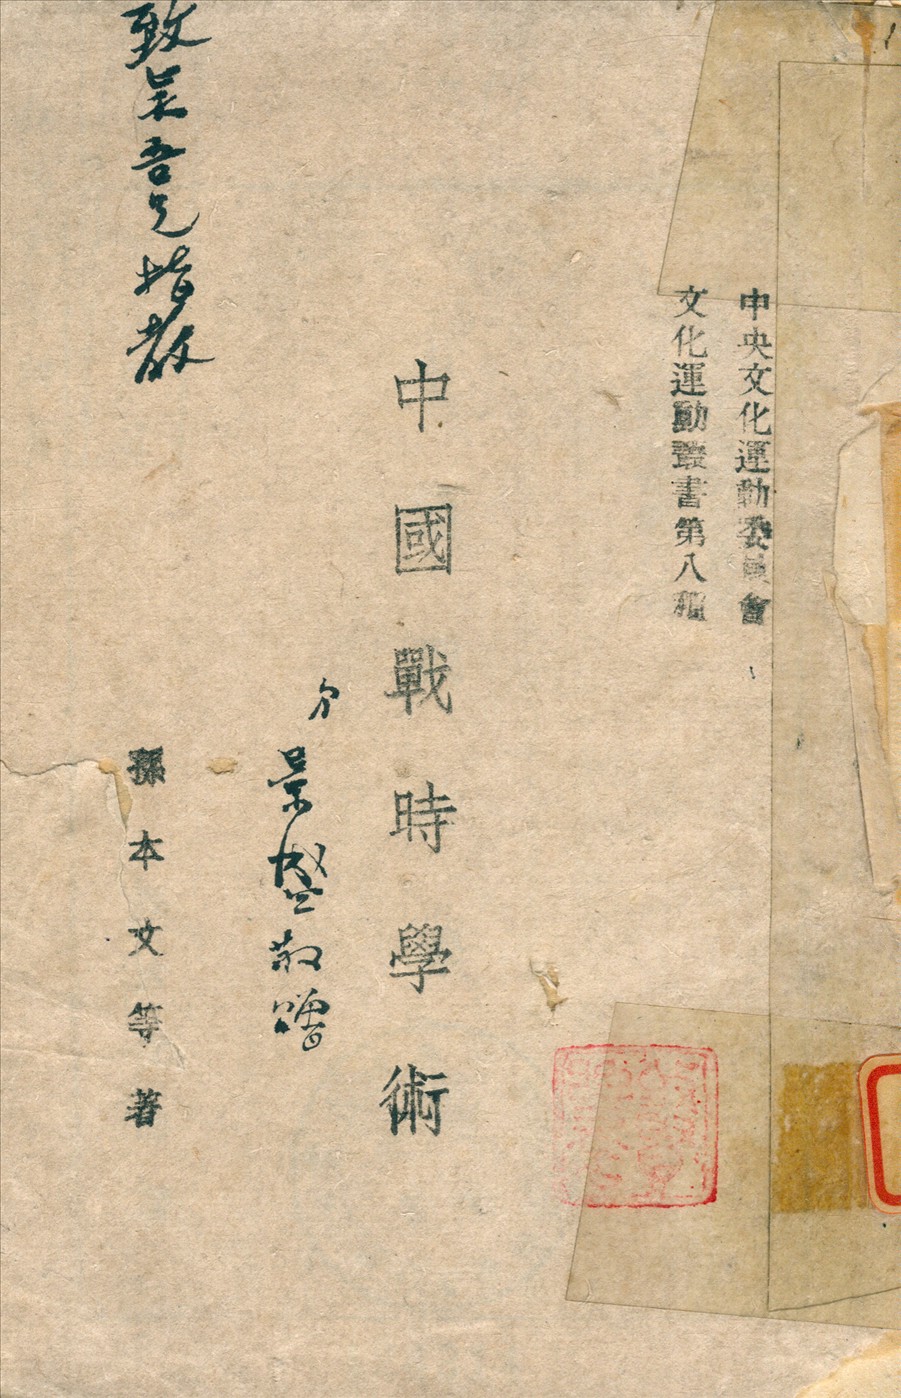 中央文化運動委員會
文化運動叢書第八種
中國戰時學術
弟景盛敬贈
孫本文等著
致吾兄指教